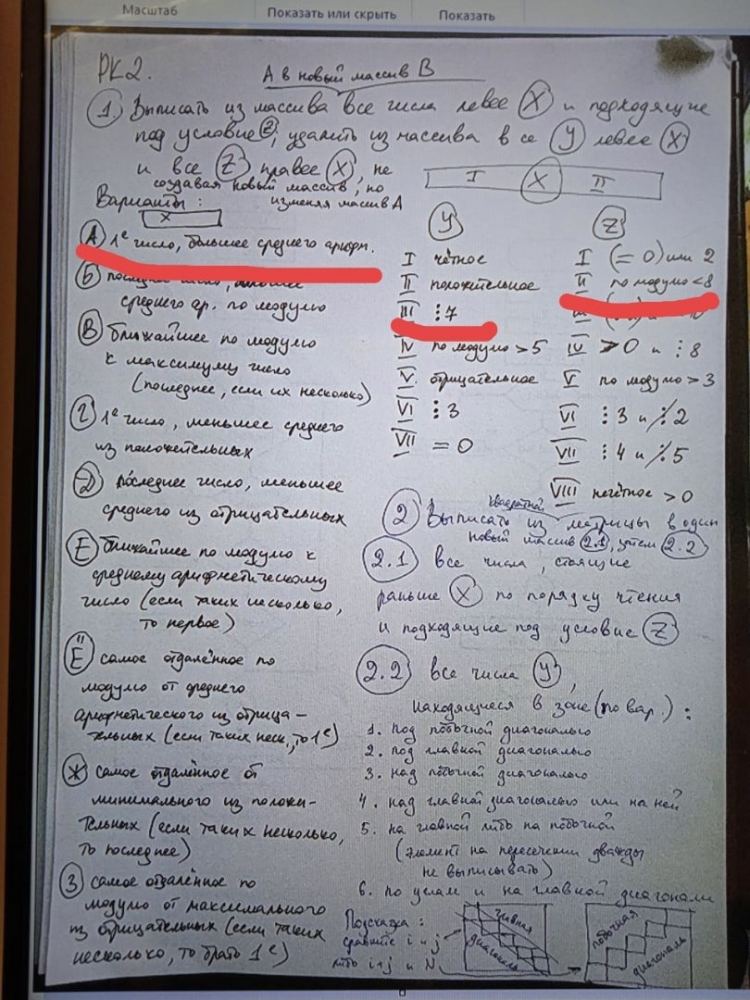 Масштаб
Показать или скрыть
Показать
РК2.
А в новый массив В
1 Выписать из массива все числа левее X и подходящие
под условие Z, удалить из массива все Y левее X
и все Z правее X, не
создавая новый массив, но
изменяя массив А
I X II
Варианты:
X
А 1е число, большее среднего арифм.
Б последнее число,
среднего ар. по модулю
В ближайшее по модулю
к максимуму число
(последнее, если их несколько)
Г 1е число, меньшее среднего
из положительных
Д последнее число, меньшее
среднего из отрицательных
Е ближайшее по модулю к
среднему арифметическому
число (если таких несколько,
то первое)
Ё самое отдалённое по
модулю от среднего
арифметического из отрица-
тельных (если таких неск., то 1е)
Ж самое отдалённое от
минимального из положи-
тельных (если таких несколько,
то последнее)
З самое отдалённое по
модулю от максимального
из отрицательных (если таких
несколько, то брать 1е)
Y
I чётное
II положительное
III ⋮7
IV по модулю >5
V отрицательное
VI ⋮3
VII =0
Z
I (=0) или 2
II по модулю <8
III
IV >0 и ⋮8
V по модулю >3
VI ⋮3 и ⋮̸2
VII ⋮4 и ⋮̸5
VIII нечётное >0
2 Выписать из квадратной матрицы в один
новый массив 2.1, затем 2.2
2.1 все числа, стоящие
раньше X по порядку чтения
и подходящие под условие Z
2.2 все числа Y,
находящиеся в зоне (по вар.):
1. под побочной диагональю
2. под главной диагональю
3. над побочной диагональю
4. над главной диагональю или на ней
5. на главной либо на побочной
(элемент на пересечении дважды
не выписывать)
6. по углам и на главной диагонали
Подсказка:
сравните i и j
либо i+j и N
главная
диагональ
побочная
диагональ